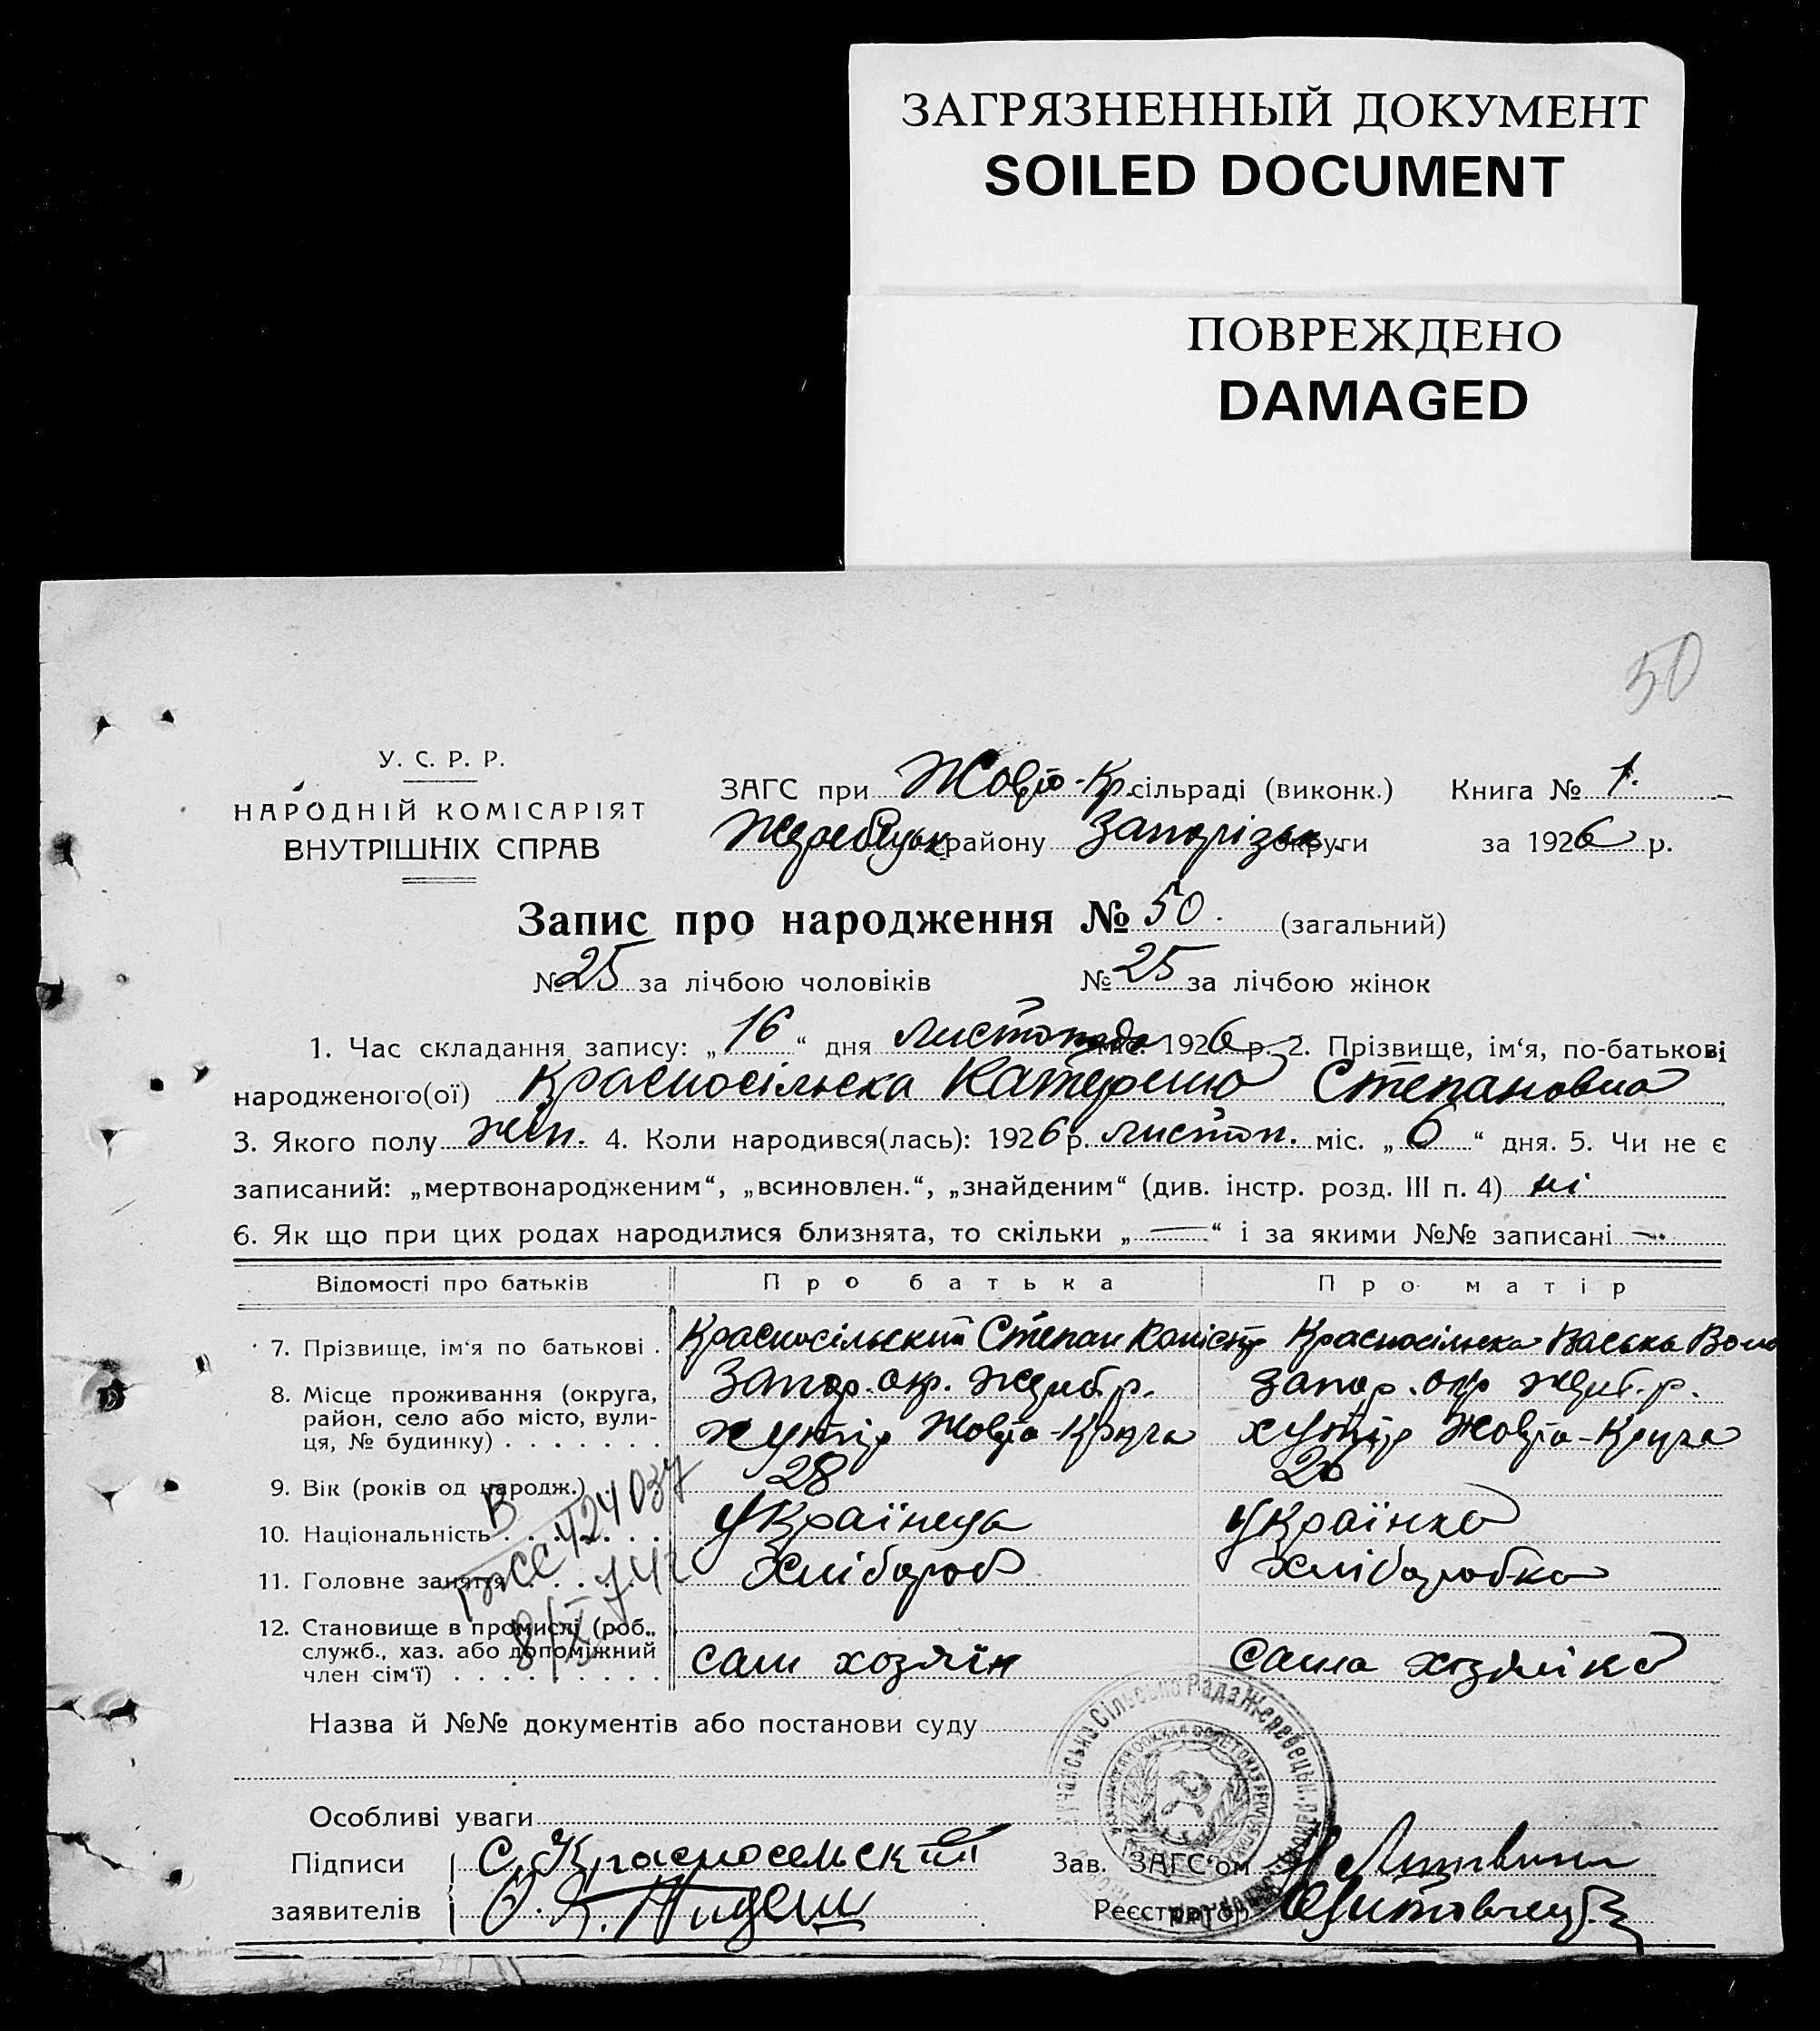 ЗАГРЯЗНЕННЫЙ ДОКУМЕНТ
SOILED DOCUMENT
ПОВРЕЖДЕНО
DAMAGED
50
У. С. Р. Р.
НАРОДНІЙ КОМІСАРІЯТ
ВНУТРІШНІХ СПРАВ
ЗАГС при Жовто-Кр. сільраді (виконк.) Книга № 1.
району Запорізьк. округи за 1926 р.
Запис про народження № 50. (загальний)
№ 25 за лічбою чоловіків № 25 за лічбою жінок
1. Час складання запису: „16“ дня листопада міс. 1926 р. 2. Прізвище, ім‘я, по-батькові
народженого(ої) Красносільська Катерина Степановна
3. Якого полу жін. 4. Коли народився(лась): 1926 р. листоп. міс. „6“ дня. 5. Чи не є
записаний: „мертвонародженим“, „всиновлен.“, „знайденим“ (див. інстр. розд. III п. 4) ні
6. Як що при цих родах народилися близнята, то скільки „—“ і за якими №№ записані —
Відомості про батьків Про батька Про матір
7. Прізвище, ім‘я по батькові . Красносільский Степан Красносільска
8. Місце проживання (округа, район, село або місто, вулиця, № будинку) . . . . . . . Запор. окр. р. Запор. окр р.
хутір Жовта-Круча хутір Жовта-Круча
9. Вік (років од народж.) 28
10. Національність . . . . . . Українець Українка
11. Головне заняття . . . . . хлібороб хліборобка
12. Становище в промислі (роб., служб., хаз. або допоміжний член сім‘ї) . . . . . . . . . . сам хозяїн сама хозяйка
В
424037
8/X 74г
Назва й №№ документів або постанови суду
Особливі уваги
Підписи С. Красносельский Зав. ЗАГС‘ом
заявителів Реєстратор